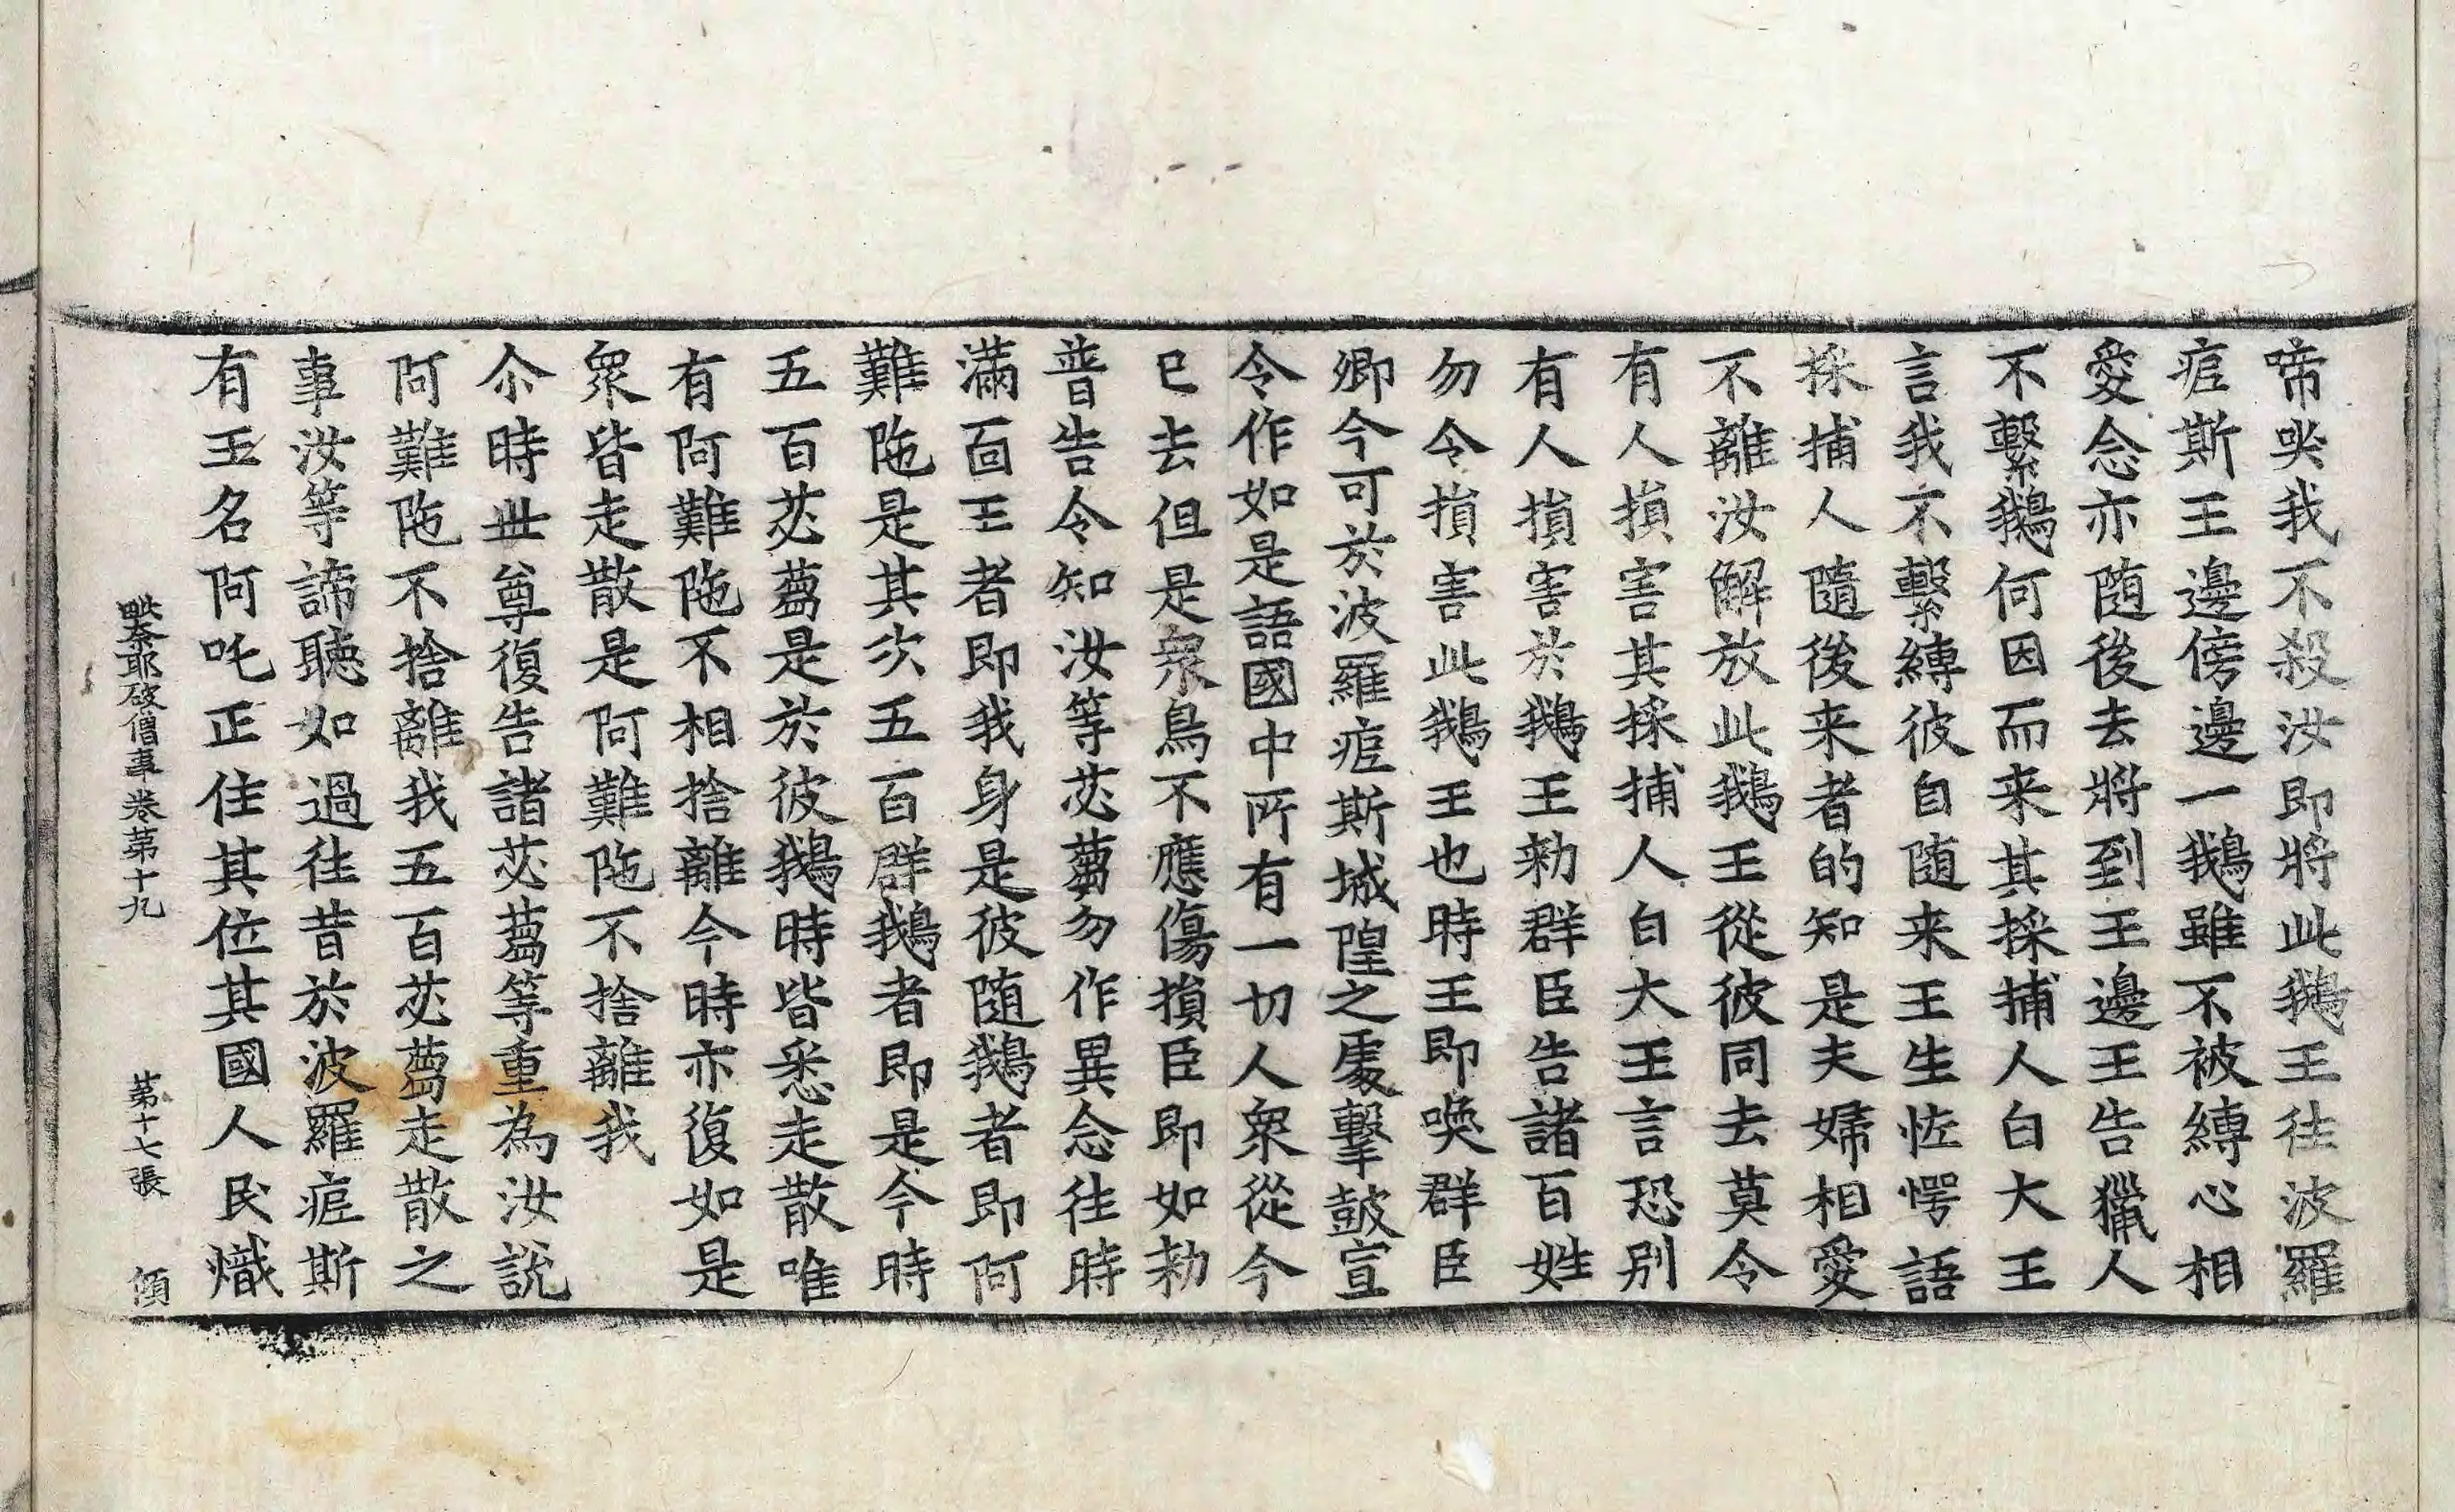 啼哭我不殺汝即將此鵝王往波羅
痆斯王邊傍邊一鵝雖不被縛心相
愛念亦随後去將到王邊王告獵人
不繫鵝何因而来其採捕人白大王
言我不繫縛彼自随来王生恠愕語
採捕人隨後来者的知是夫婦相愛
不離汝解放此鵝王從彼同去莫令
有人損害其採捕人白大王言恐别
有人損害於鵝王勑群臣告諸百姓
勿令損害此鵝王也時王即喚群臣
卿今可於波羅痆斯城隍之處擊鼓宣
令作如是語國中所有一切人衆從今
已去但是衆鳥不應傷損臣即如勑
普告令知汝等苾蒭勿作異念往時
滿面王者即我身是彼随鵝者即阿
難陁是其次五百群鵝者即是今時
五百苾蒭是於彼鵝時皆悉走散唯
有阿難陁不相捨離今時亦復如是
衆皆走散是阿難陁不捨離我
尒時世尊復告諸苾蒭等重為汝說
阿難陁不捨離我五百苾蒭走散之
事汝等諦聽如過往昔於波羅痆斯
有王名阿吒正住其位其國人民熾
毗奈耶破僧事卷第十九 第十七張 傾